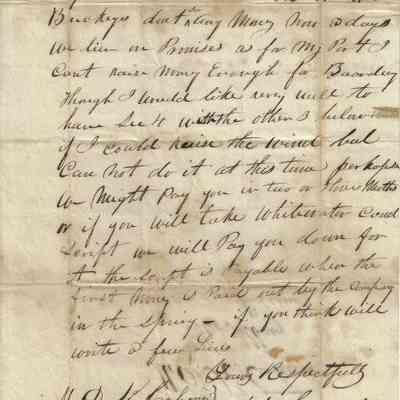 Buckeys dont bring Money now a days
we live on Promises as for My Part I
Cant raise Money Enough for Boarding
though I would like very well to
have Sec 4 with the others below
if I could raise the wind but
Can not do it at this time perhaps
we Might Pay you in two or three Moths
or if you will take Whitewater Canal
Script we will Pay you down for
it the Script is Payable when the
first Money is Paid out by the Compy
in the Spring — if you think will
write a few Lines
Yours Respectfuly